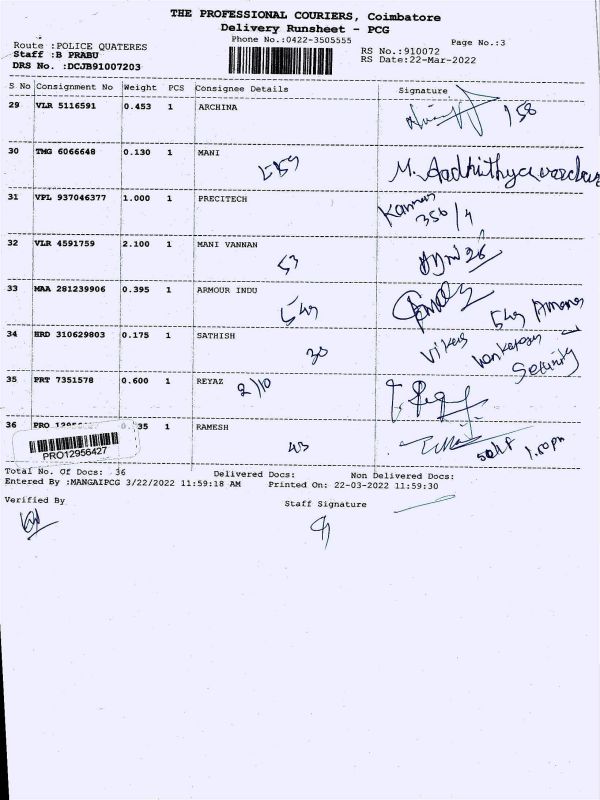 THE PROFESSIONAL COURIERS, Coimbatore
Delivery Runsheet - PCG
Phone No.:0422-3505555
Page No.:3
Route :POLICE QUATERES
RS No.:910072
Staff :B PRABU
RS Date:22-Mar-2022
DRS No. :DCJB91007203
S No Consignment No Weight PCS Consignee Details Signature
29 VLR 5116591 0.453 1 ARCHINA
158
30 TMG 6066648 0.130 1 MANI
M. Aadhithya
31 VPL 937046377 1.000 1 PRECITECH
Kannan
356/4
32 VLR 4591759 2.100 1 MANI VANNAN
53
33 MAA 281239906 0.395 1 ARMOUR INDU
549
549
34 HRD 310629803 0.175 1 SATHISH
30
Security
35 PRT 7351578 0.600 1 REYAZ
2/10
36 PRO 35 1 RAMESH
PRO12956427
1.50pm
Total No. Of Docs: 36 Delivered Docs: Non Delivered Docs:
Entered By :MANGAIPCG 3/22/2022 11:59:18 AM Printed On: 22-03-2022 11:59:30
Verified By Staff Signature